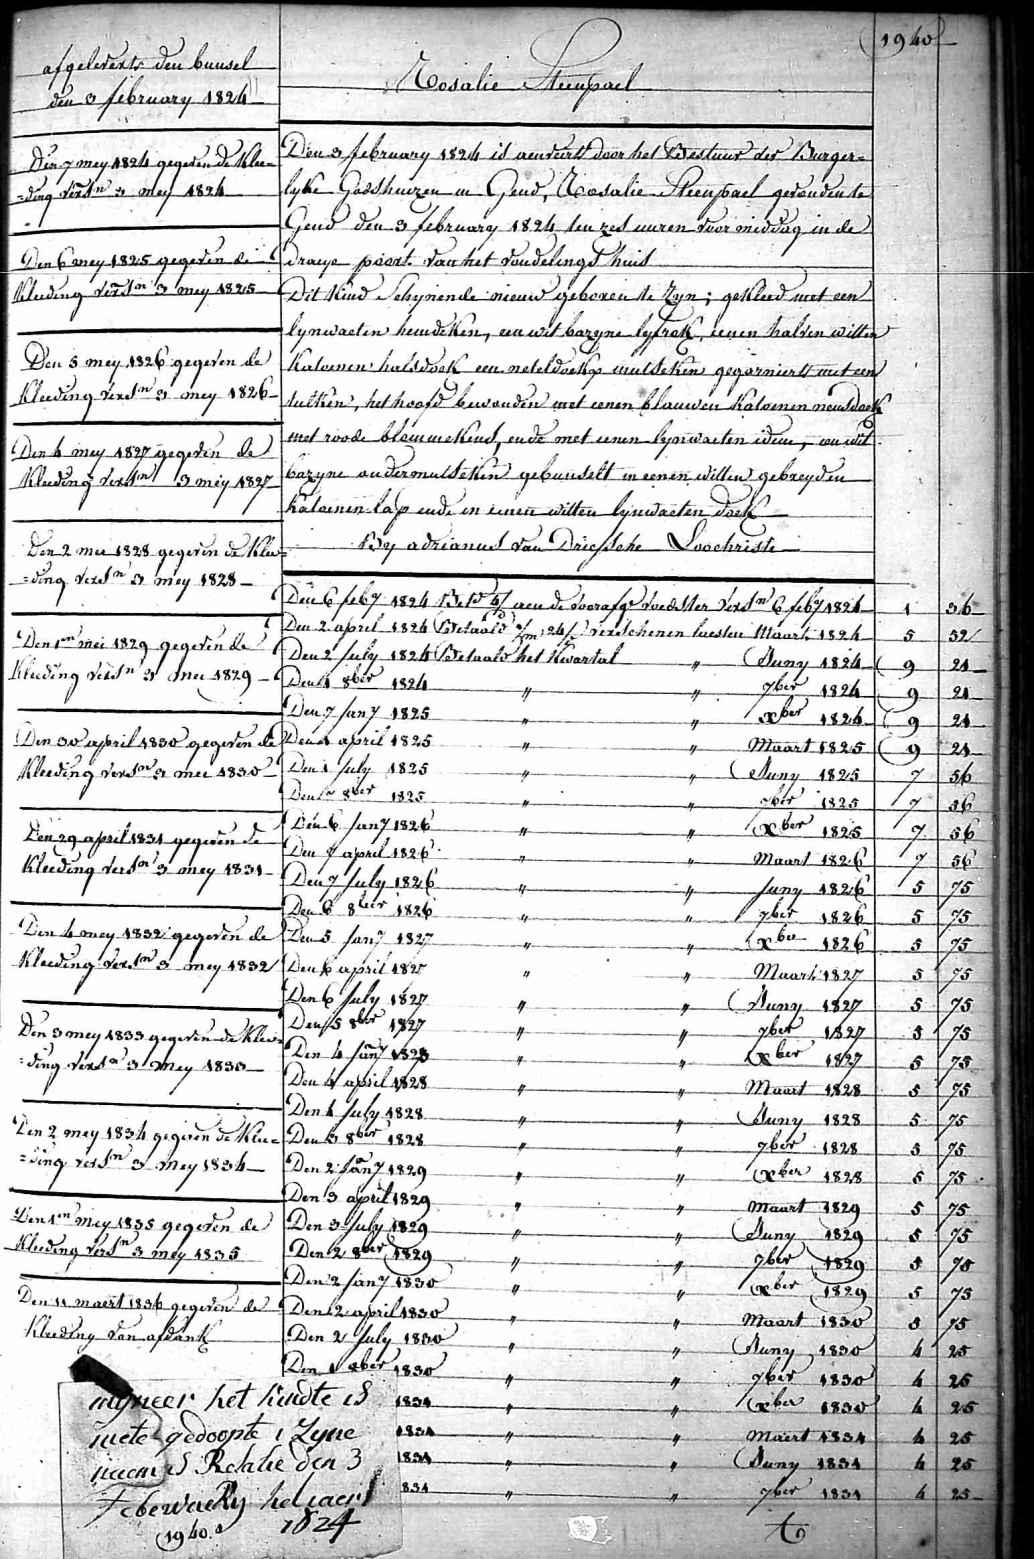 1940
Rosalie Steenpael
afgeleverts den bunsel
den 3 february 1824
Den 7 mey 1824 gegeven de Klee=
=ding versn 3 mey 1824
Den 6 mey 1825 gegeven de
Kleeding versn 3 mey 1825
Den 5 mey 1826 gegeven de
Kleeding versn 3 mey 1826
Den 4 mey 1827 gegeven de
Kleeding versn 3 mey 1827
Den 2 mei 1828 gegeven de Klee=
=ding versn 3 mey 1828
Den 1en mei 1829 gegeven de
Kleeding versn 3 mei 1829
Den 30 april 1830 gegeven de
Kleeding versn 3 mei 1830
Den 29 april 1831 gegeven de
Kleeding versn 3 mey 1831
Den 4 mey 1832 gegeven de
Kleeding versn 3 mey 1832
Den 3 mey 1833 gegeven de Klee=
=ding versn 3 mey 1833
Den 2 mey 1834 gegeven de Klee=
=ding versn 3 mey 1834
Den 1en mey 1835 gegeven de
Kleeding versn 3 mey 1835
Den 11 maert 1836 gegeven de
Kleeding van afdank
Den 3 february 1824 is aenveirt door het Bestuur der Burger=
lyke Godshuizen in Gend, Rosalie Steenpael gevonden te
Gend den 3 february 1824 ten zes uuren voormiddag in de
draeye poort van het vondelings huis
Dit Kind Schynende nieuw geboren te Zyn; gekleed met een
lynwaeten hemdeken, een wit bazyne lyfrok, eenen halven witten
Katoenen halsdoek een neteldoeks mutseken gegarniert met een
tulken, het hoofd bewonden met eenen blauwen Katoenen neusdoek
met roode blommekens, ende met eenen lynwaeten idem, een wit
bazyne ondermutseken gebunselt in eenen witten gebreyden
Katoenen lap ende in eenen witten lynwaeten doek
By adrianus van Driessche Loochristi
Den 6 feby 1824 aen de voorafge voedster versn 6 feby 1824 1 36
Den 2 april 1824 Betaald verschenen laesten Maart 1824 5 52
Den 2 July 1824 Betaald het Kwartal " Juny 1824 9 21
Den 1 8ber 1824 " " 7ber 1824 9 21
Den 7 Jany 1825 " " xber 1824 9 21
Den 1 april 1825 " " Maart 1825 9 21
Den 1 July 1825 " " Juny 1825 7 56
Den 8ber 1825 " " 7ber 1825 7 56
Den 6 Jany 1826 " " xber 1825 7 56
Den 7 april 1826 " " Maart 1826 7 56
Den 7 July 1826 " " Juny 1826 5 75
Den 6 8ber 1826 " " 7ber 1826 5 75
Den 5 Jany 1827 " " xber 1826 5 75
Den 6 april 1827 " " Maart 1827 5 75
Den 6 July 1827 " " Juny 1827 5 75
Den 5 8ber 1827 " " 7ber 1827 5 75
Den 4 Jany 1828 " " xber 1827 5 75
Den 4 april 1828 " " Maart 1828 5 75
Den 4 July 1828 " " Juny 1828 5 75
Den 3 8ber 1828 " " 7ber 1828 5 75
Den 2 Jany 1829 " " xber 1828 5 75
Den 3 april 1829 " " Maart 1829 5 75
Den 3 July 1829 " " Juny 1829 5 75
Den 2 8ber 1829 " " 7ber 1829 5 75
Den 2 Jany 1830 " " xber 1829 5 75
Den 2 april 1830 " " Maart 1830 5 75
Den 2 July 1830 " " Juny 1830 4 25
Den 1 8ber 1830 " " 7ber 1830 4 25
1831 " " xber 1830 4 25
1831 " " Maert 1831 4 25
1831 " " Juny 1831 4 25
831 " " 7ber 1831 4 25
mynheer het kindte is
niete gedoopte i Zyne
naem is Rosalie den 3
Febewaery het iaer
1824
1940